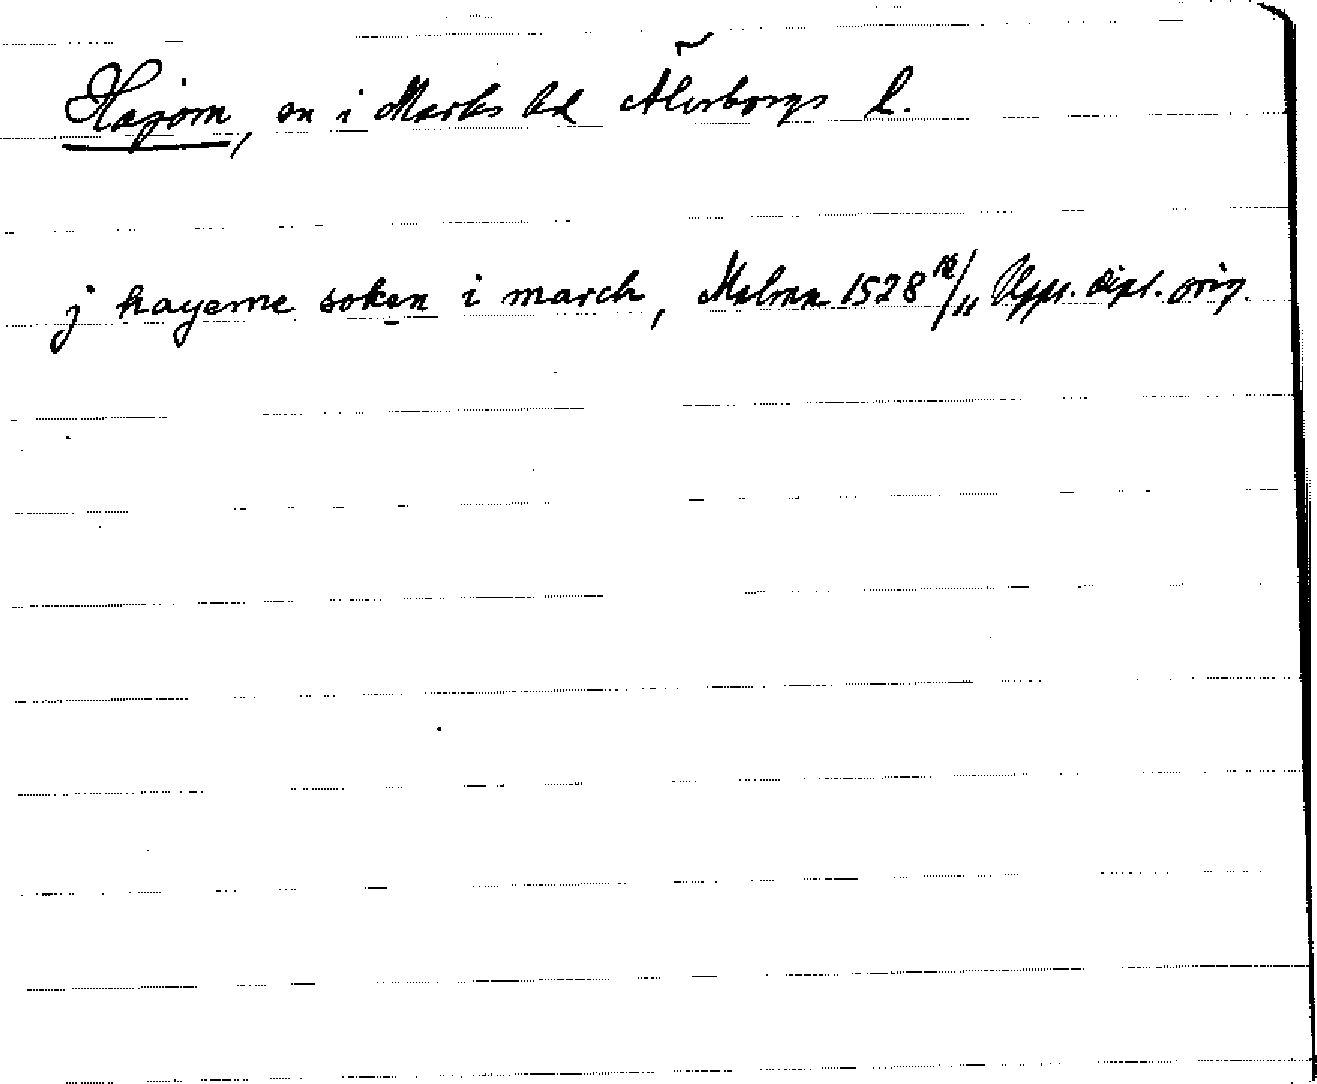 Hajom, sn i Marks hd Älvsborgs l.
j hayeme soken i march, 1528 /11 Upps. dipl. orig.